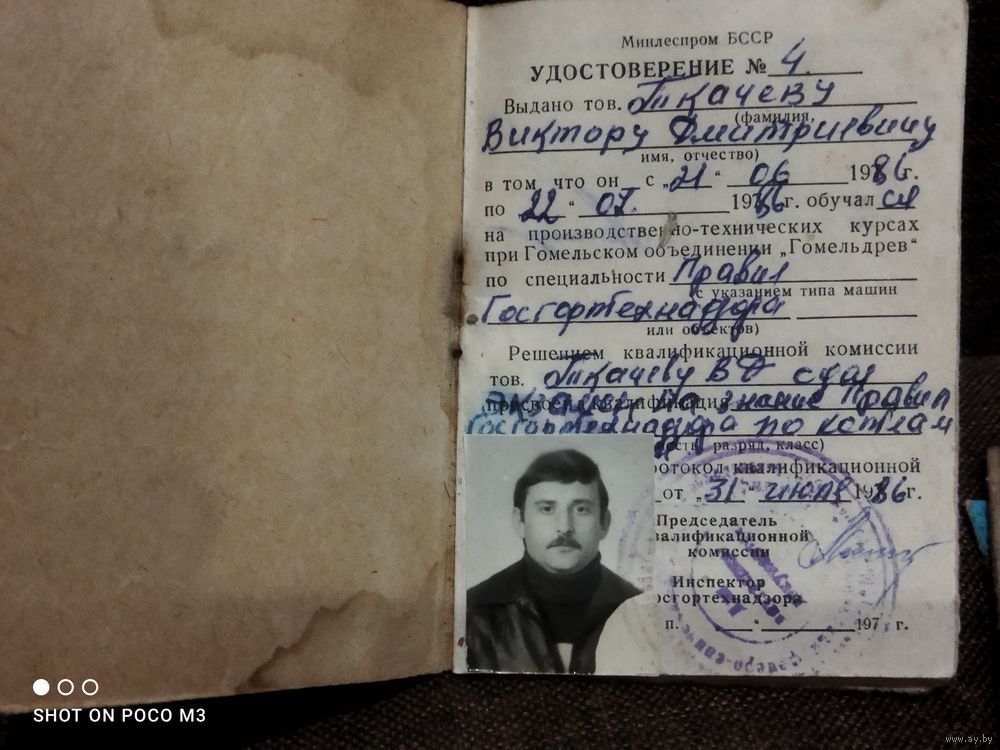 Минлеспром БССР
УДОСТОВЕРЕНИЕ № 4.
Выдано тов. Ткачеву
(фамилия,
Виктору Дмитриевичу
имя, отчество)
в том, что он с „21“ 06 1986 г.
по 22 “ 07. 1986 г. обучался
на производственно-технических курсах
при Гомельском объединении „Гомельдрев“
по специальности Правил
(с указанием типа машин
Госгортехнадзора
или объектов)
Решением квалификационной комиссии
тов. Ткачеву ВД сдал
присвоена квалификация
экзамен на знание Правил
Госгортехнадзора по котлам
разряд, класс)
ротокол квалификационной
от „31“ июля 1986 г.
Председатель
валификационной
комиссии
Инспектор
осгортехнадзора
п. “ 197 г.
SHOT ON POCO M3
www.ay.by